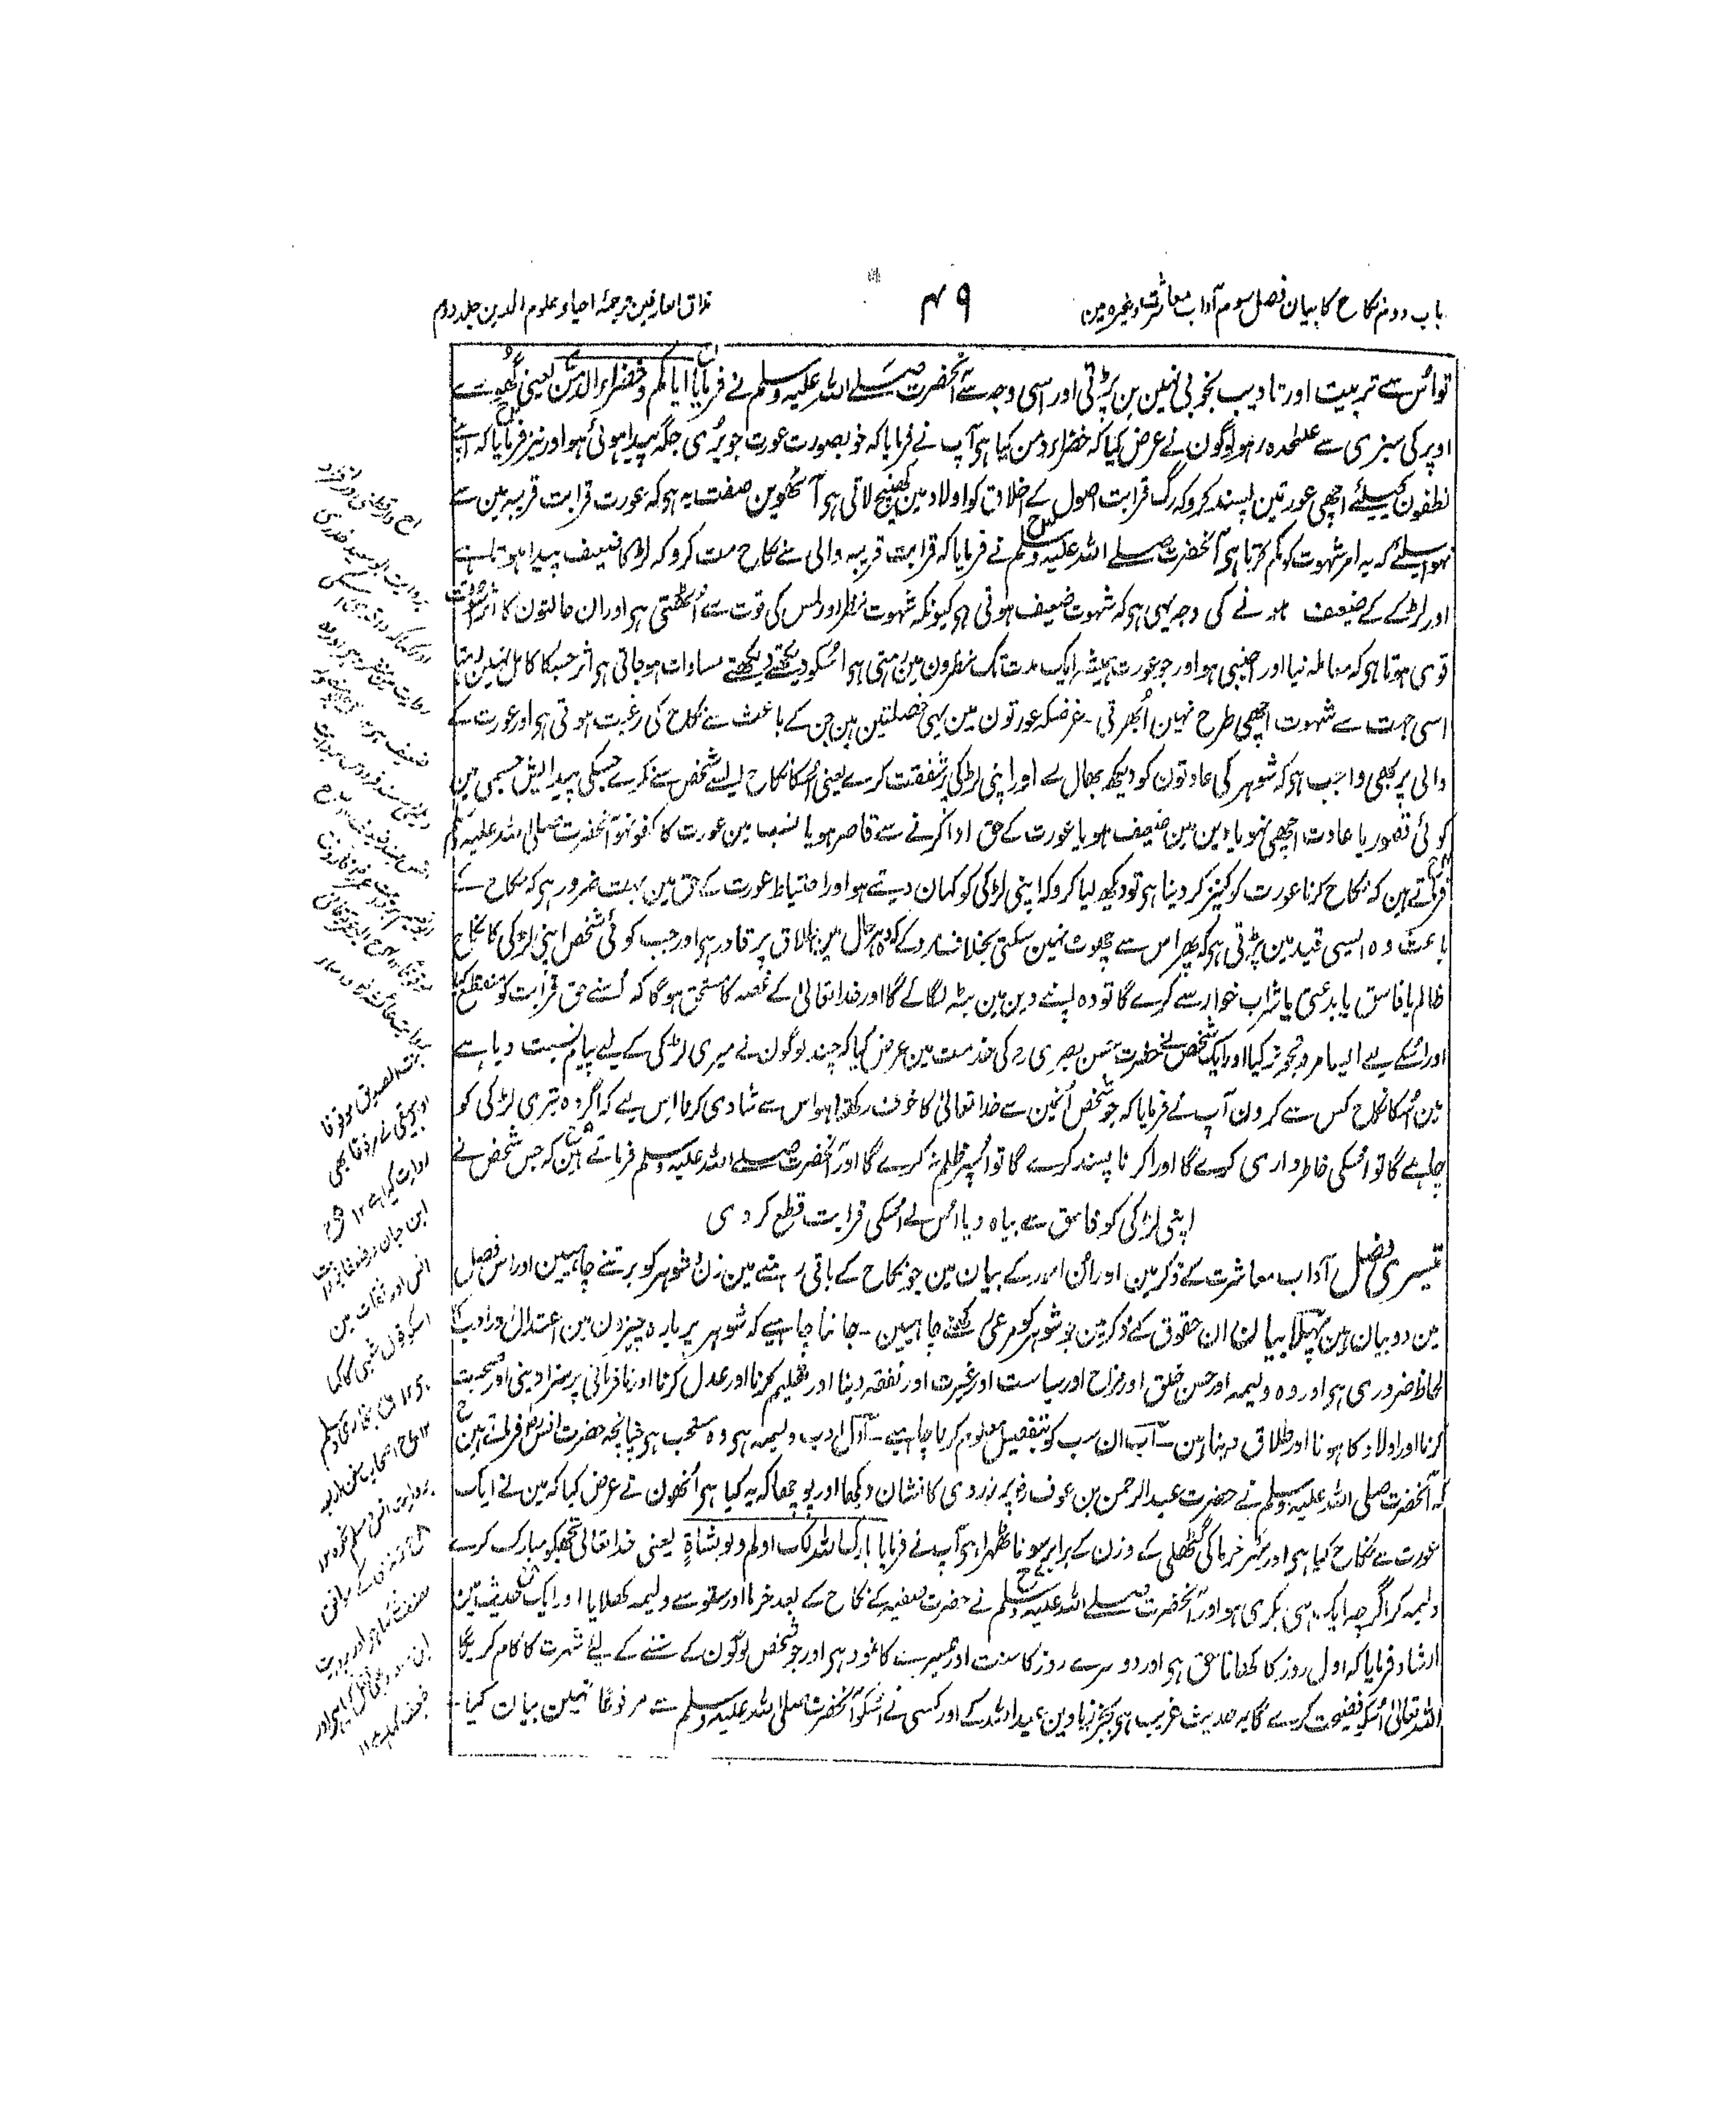 باب دوم نکاح کا بیان فصل سوم آداب معاشرت وغیرہ مین
۴۹
مذاق العارفین ترجمہ احیاء علوم الدین جلد دوم
تو اُس سے تربیت اور تادیب بخوبی نہین بن پڑتی اور اسی وجہ سے آنحضرت صلے اللہ علیہ وسلم نے فرمایا ایاکم وخضراء الدمن یعنی گھورے
اوپر کی سبزی سے علٰحدہ رہو لوگون نے عرض کیا کہ خضراء دمن کیا ہی آپ نے فرمایا کہ خوبصورت عورت جو بُری جگہ پیدا ہوئی ہو اور نیز فرمایا کہ اپنے
نطفون کیلیئے اچھی عورتین پسند کرو کہ رگ قرابت اصول کے اخلاق کو اولاد مین کھینچ لاتی ہی آٹھوین صفت یہ ہی کہ عورت قرابت قریبہ مین سے
نہو اسلیئے کہ یہ امر شہوت کو کم کرتا ہی آنحضرت صلے اللہ علیہ وسلم نے فرمایا کہ قرابت قریبہ والی سے نکاح مت کرو کہ لڑکا ضعیف پیدا ہوتا ہے
اور لڑکے کے ضعیف ہونے کی وجہ یہی ہی کہ شہوت ضعیف ہوتی ہی کیونکہ شہوت نظر اور لمس کی قوت سے اُٹھتی ہی اور ان حالتون کا اثر اسوقت
قوی ہوتا ہی کہ معاملہ نیا اور اجنبی ہو اور جو عورت ہمیشہ ایک مدت تک نظرون مین رہتی ہی اُسکو دیکھتے دیکھتے مساوات ہو جاتی ہی اثر حسکا کامل نہین رہتا
اسی جہت سے شہوت اچھی طرح نہین اُبھرتی ۔ غرضکہ عورتون مین یہی خصلتین ہین جن کے باعث سے نکاح کی رغبت ہوتی ہی اور عورت کے
والی پر بھی واجب ہی کہ شوہر کی عادتون کو دیکھ بھال لے اور اپنی لڑکی پر شفقت کرے یعنی اُسکا نکاح ایسے شخص سے نکرے جسکی پیدایش جسمی مین
کوئی قصور یا عادت اچھی نہو یا دین مین ضعیف ہو یا عورت کے حق ادا کرنے سے قاصر ہو یا نسب مین عورت کا کفو نہو آنحضرت صلی اللہ علیہ وسلم
فرماتے ہین کہ نکاح کرنا عورت کو کنیز کر دینا ہی تو دیکھ لیا کرو کہ اپنی لڑکی کو کہان دیتے ہو اور احتیاط عورت کے حق مین بہت ضرور ہی کہ نکاح کے
باعث وہ ایسی قید مین پڑتی ہی کہ پھر اس سے چھوٹ نہین سکتی بخلاف مرد کے کہ وہ ہر حال مین طلاق پر قادر ہی اور جب کوئی شخص اپنی لڑکی کا نکاح
ظالم یا فاسق یا بدعتی یا شراب خوار سے کرے گا تو وہ اپنے دین مین بٹہ لگائے گا اور خدا تعالیٰ کے غصہ کا مستحق ہوگا کہ اُسنے حق قرابت کو منقطع کیا
اور اُسکے لیے ایسا مرد تجویز کیا اور ایک شخص نے حضرت حسن بصری رہ کی خدمت مین عرض کیا کہ چند لوگون نے میری لڑکی کے لیے پیام نسبت دیا ہے
مین اُسکا نکاح کس سے کرون آپ نے فرمایا کہ جو شخص اُنمین سے خدا تعالیٰ کا خوف رکھتا ہو اس سے شادی کرنا اس لیے کہ اگر وہ تیری لڑکی کو
چاہے گا تو اُسکی خاطرداری کرے گا اور اگر ناپسند کرے گا تو اُسپر ظلم نہ کرے گا اور آنحضرت صلے اللہ علیہ وسلم فرماتے ہین کہ جس شخص نے
اپنی لڑکی کو فاسق سے بیاہ دیا اُس نے اُسکی قرابت قطع کر دی
تیسری فصل آداب معاشرت کے ذکر مین اور اُن امور کے بیان مین جو نکاح کے باقی رہنے مین زن و شوہر کو برتنے چاہیین اور اس فصل
مین دو بیان ہین پہلا بیان ان حقوق کے ذکر مین جو شوہر کو مرعی رکھنے چاہیین ۔ جاننا چاہیے کہ شوہر پر بارہ چیزون مین اعتدال اور ادب کا
لحاظ ضروری ہی اور وہ ولیمہ اور حسن خلق اور مزاح اور سیاست اور غیرت اور نفقہ دینا اور تعلیم کرنا اور عدل کرنا اور نافرمانی پر سزا دینی اور صحبت
کرنا اور اولاد کا ہونا اور طلاق دینا ہین ۔ اب ان سب کو بتفصیل معلوم کرنا چاہیے ۔ اول ادب ولیمہ ہی وہ مستحب ہی چنانچہ حضرت انسؓ فرماتے ہین
کہ آنحضرت صلی اللہ علیہ وسلم نے حضرت عبد الرحمن بن عوف رضہ پر زردی کا نشان دیکھا اور پوچھا کہ یہ کیا ہی اُنھون نے عرض کیا کہ مین نے ایک
عورت سے نکاح کیا ہی اور مہر خرما کی گٹھلی کے وزن کے برابر سونا ٹھہرا ہی آپ نے فرمایا بارک اللہ لک اولم ولو بشاۃ یعنی خدا تعالی تجھکو مبارک کرے
ولیمہ کر اگرچہ ایک ہی بکری ہو اور آنحضرت صلے اللہ علیہ وسلم نے حضرت صفیہ کے نکاح کے بعد خرما اور ستو سے ولیمہ کھلایا اور ایک حدیث مین
ارشاد فرمایا کہ اول روز کا کھانا حق ہی اور دوسرے روز کا سنت اور تیسرے کا نمود ہی اور جو شخص لوگون کے سننے کے لیئے شہرت کا کام کریگا
اللہ تعالیٰ اُسکو فضیحت کرے گا یہ حدیث غریب ہی بجز زیاد بن عبد اللہ کے اور کسی نے اُسکو آنحضرت صلی اللہ علیہ وسلم سے مرفوعا نہین بیان کیا ۔
بنت الصدیق موقوفا
اور بیہقی نے مرفوعا بھی
روایت کیا ہے ۱۲
ابن حبان در ضعفا بروایت
انس اور ثقات مین
اسکو قول شعبی کا کہا
ہی ۱۲ بخاری و مسلم
بروایت انس و مسلم